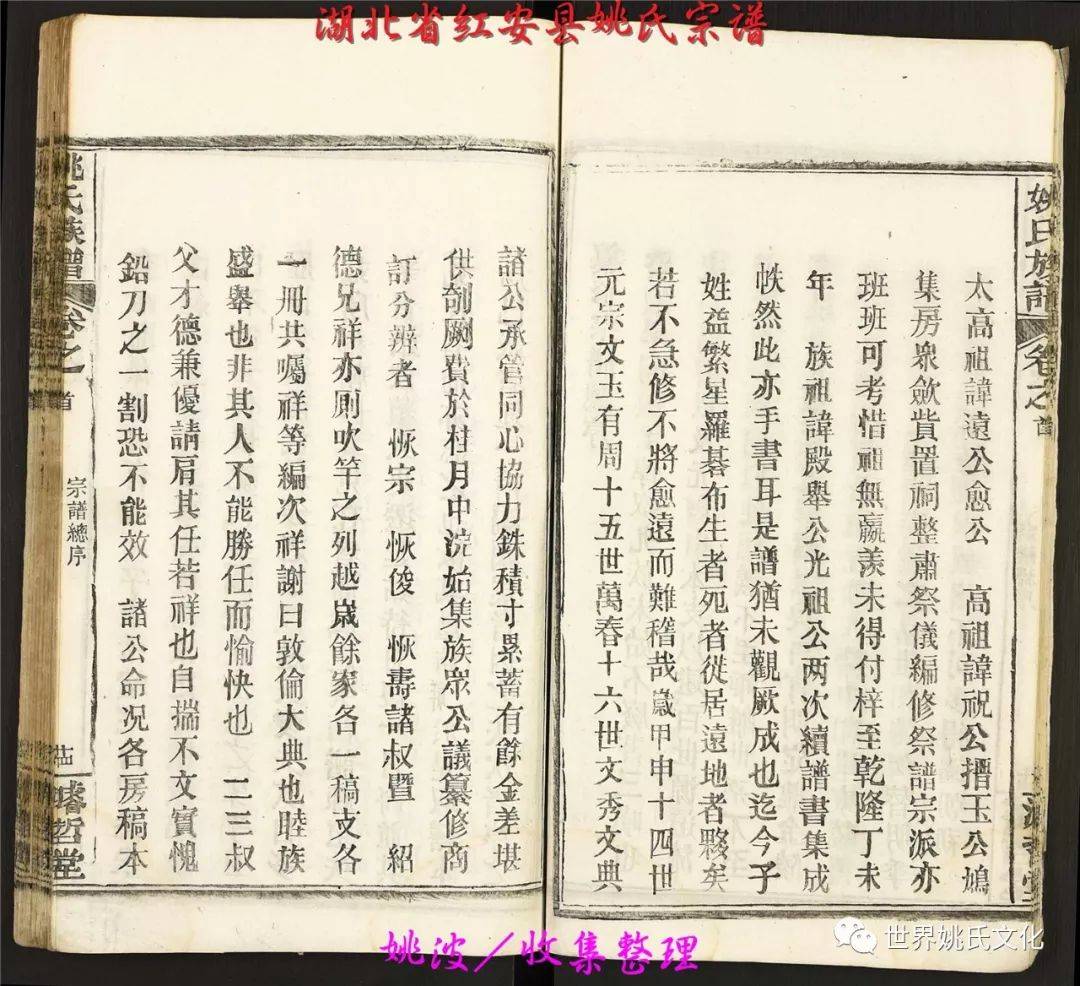 湖北省红安县姚氏宗谱
姚氏族譜
卷之首
太高祖諱遠公愈公　高祖諱祝公搢玉公鳩
集房衆歛貲置祠整肅祭儀編修祭譜宗派亦
班班可考惜祖無羸羡未得付梓至乾隆丁未
年　族祖諱殿舉公光祖公两次續譜書集成
帙然此亦手書耳是譜猶未觀厥成也迄今子
姓益繁星羅碁布生者死者從居遠地者夥矣
若不急修不將愈遠而難稽哉歲甲申十四世
元宗文玉有周十五世萬春十六世文秀文典
諸公承管同心協力銖積寸累蓄有餘金差堪
供剞劂費於桂月中浣始集族眾公議纂修商
訂分辨者　恢宗　恢俊　恢壽諸叔暨　紹
德兄祥亦厠吹竽之列越歲餘家各一稿支各
一冊共囑祥等編次祥謝曰敦倫大典也睦族
盛舉也非其人不能勝任而愉快也　二三叔
父才德兼優請肩其任若祥也自揣不文實愧
鉛刀之一割恐不能效　諸公命况各房稿本
姚氏族譜
卷之首
宗譜總序
濬哲堂
姚波／收集整理
世界姚氏文化